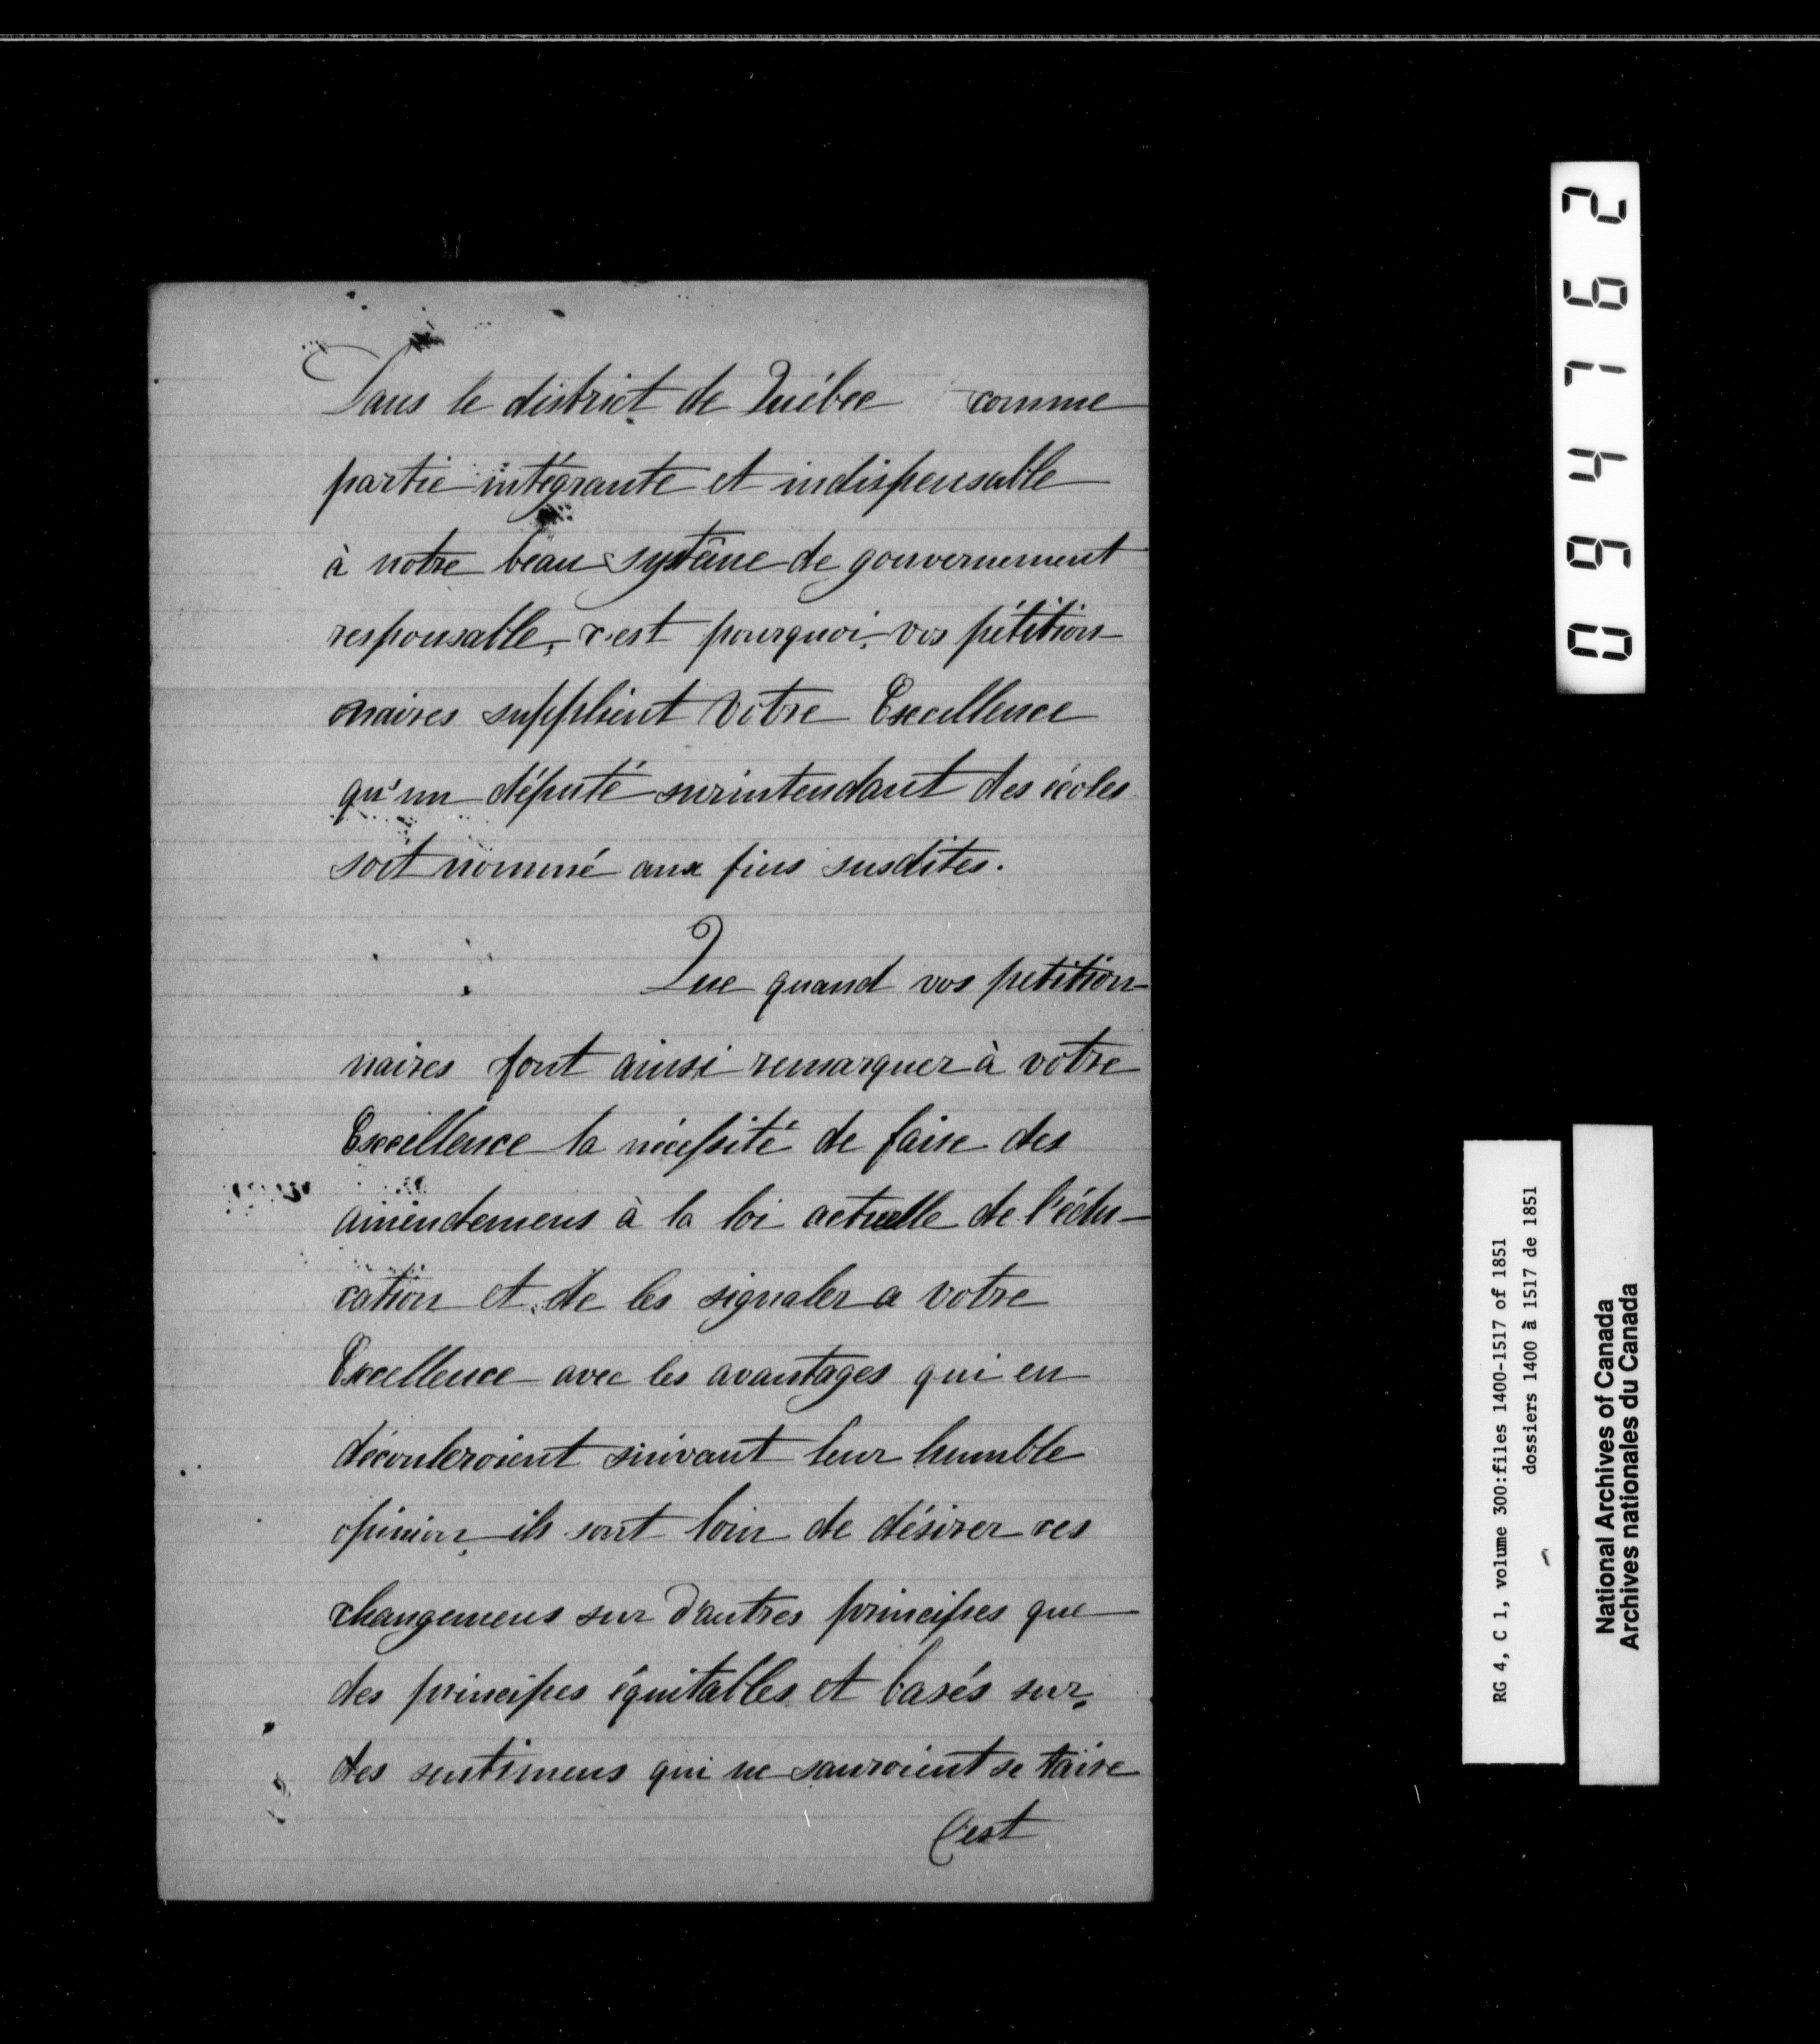 Dans le district de Québec comme
partie intégrante et indispensable
à notre beau systême de gouvernement
responsable, c'est pourquoi, vos pétition-
onaires supplient Votre Excellence
qu'un député surintendant des écoles
soit nommé aux fins susdites.
Que quand vos petition-
naires font ainsi remarquer à votre
Excellence la nécessité de faire des
amendemens à la loi actuelle de l'édu-
cation et de les signaler a votre
Excellence avec les avantages qui en
découleroient suivant leur humble
opinion, ils sont loin de désirer ces
changemens sur d'autres principes que
des principes équitables et basés sur
des sentimens qui ne sauroient se taire
C'est
094762
RG 4, C 1, volume 300:files 1400-1517 of 1851
dossiers 1400 à 1517 de 1851
National Archives of Canada
Archives nationales du Canada